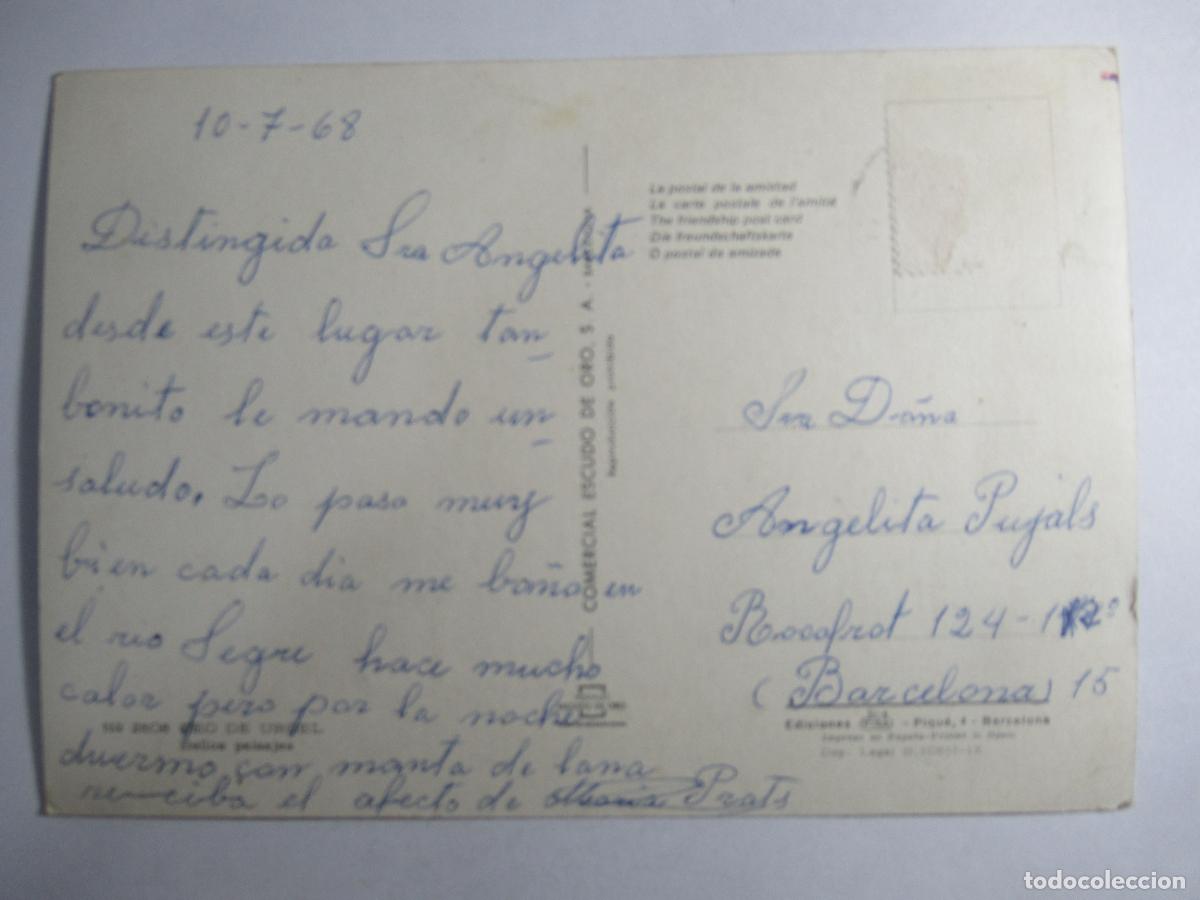 10-7-68
Distingida Sra Angelita
desde este lugar tan
bonito le mando un
saludo. Lo paso muy
bien cada dia me baño en
el rio Segre hace mucho
calor pero por la noche
duermo con manta de lana
reciba el afecto de Maria Prats
La postal de la amistad
La carte postale de l'amitié
The friendship post card
Die freundschaftskarte
O postal de amizade
COMERCIAL ESCUDO DE ORO, S. A. -
Reproducción prohibida
Sra Doña
Angelita Pujals
Rocafrot 124 -
(Barcelona) 15
SEO DE URGEL
Bellos paisajes
Ediciones - Piqué, 4 - Barcelona
todocoleccion